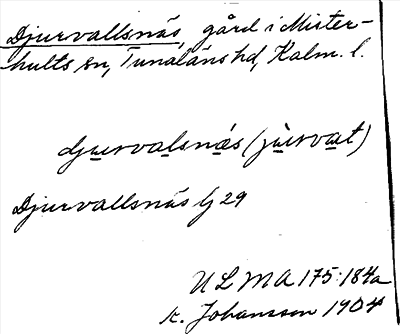 Djurvallsnäs, gård i Mister-
hults sn, Tunaläns hd, Kalm. l.
djurvalsnäs (jùrvat)
Djurvallsnäs Lj 29
ULMA 175:184a
K. Johansson 1904